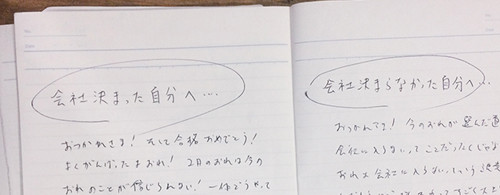 会社決まった自分へ…
おつかれさま! そして合格おめでとう!
よくがんばったなおれ! 2日のおれは今の
おれのことが信じられない! 一体どうやって
会社決まらなかった自分へ…
おつかれさま! 今のおれが選んだ道
会社に入らないってことだったんじゃな
おれは会社に入らない、という決